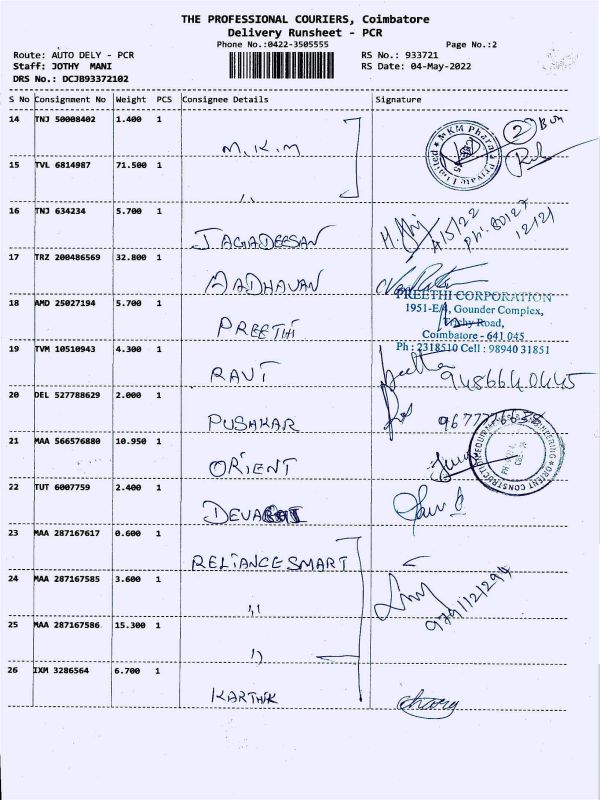 THE PROFESSIONAL COURIERS, Coimbatore
Delivery Runsheet - PCR
Phone No.:0422-3505555
Page No.:2
Route: AUTO DELY - PCR
RS No.: 933721
Staff: JOTHY MANI
RS Date: 04-May-2022
DRS No.: DCJB93372102
S No Consignment No Weight PCS Consignee Details Signature
14 TNJ 50008402 1.400 1
M.K.M
15 TVL 6814987 71.500 1
,,
MKM Pharma Private Limited
2 Box
16 TNJ 634234 5.700 1
JAGADEESAN
4/5/22
Ph: 80127
12121
17 TRZ 200486569 32.800 1
MADHAVAN
18 AMD 25027194 5.700 1
PREETHI
PREETHI CORPORATION
1951-E/4, Gounder Complex,
Trichy Road,
Coimbatore - 641 045
Ph : 2318510 Cell : 98940 31851
19 TVM 10510943 4.300 1
RAVI
9486640445
20 DEL 527788629 2.000 1
PUSAKAR
21 MAA 566576880 10.950 1
ORIENT
ORIENT CONSTRUCTION EQUIPMENT
22 TUT 6007759 2.400 1
23 MAA 287167617 0.600 1
RELIANCE SMART
24 MAA 287167585 3.600 1
,,
9791121294
25 MAA 287167586 15.300 1
,,
26 IXM 3286564 6.700 1
KARTHIK